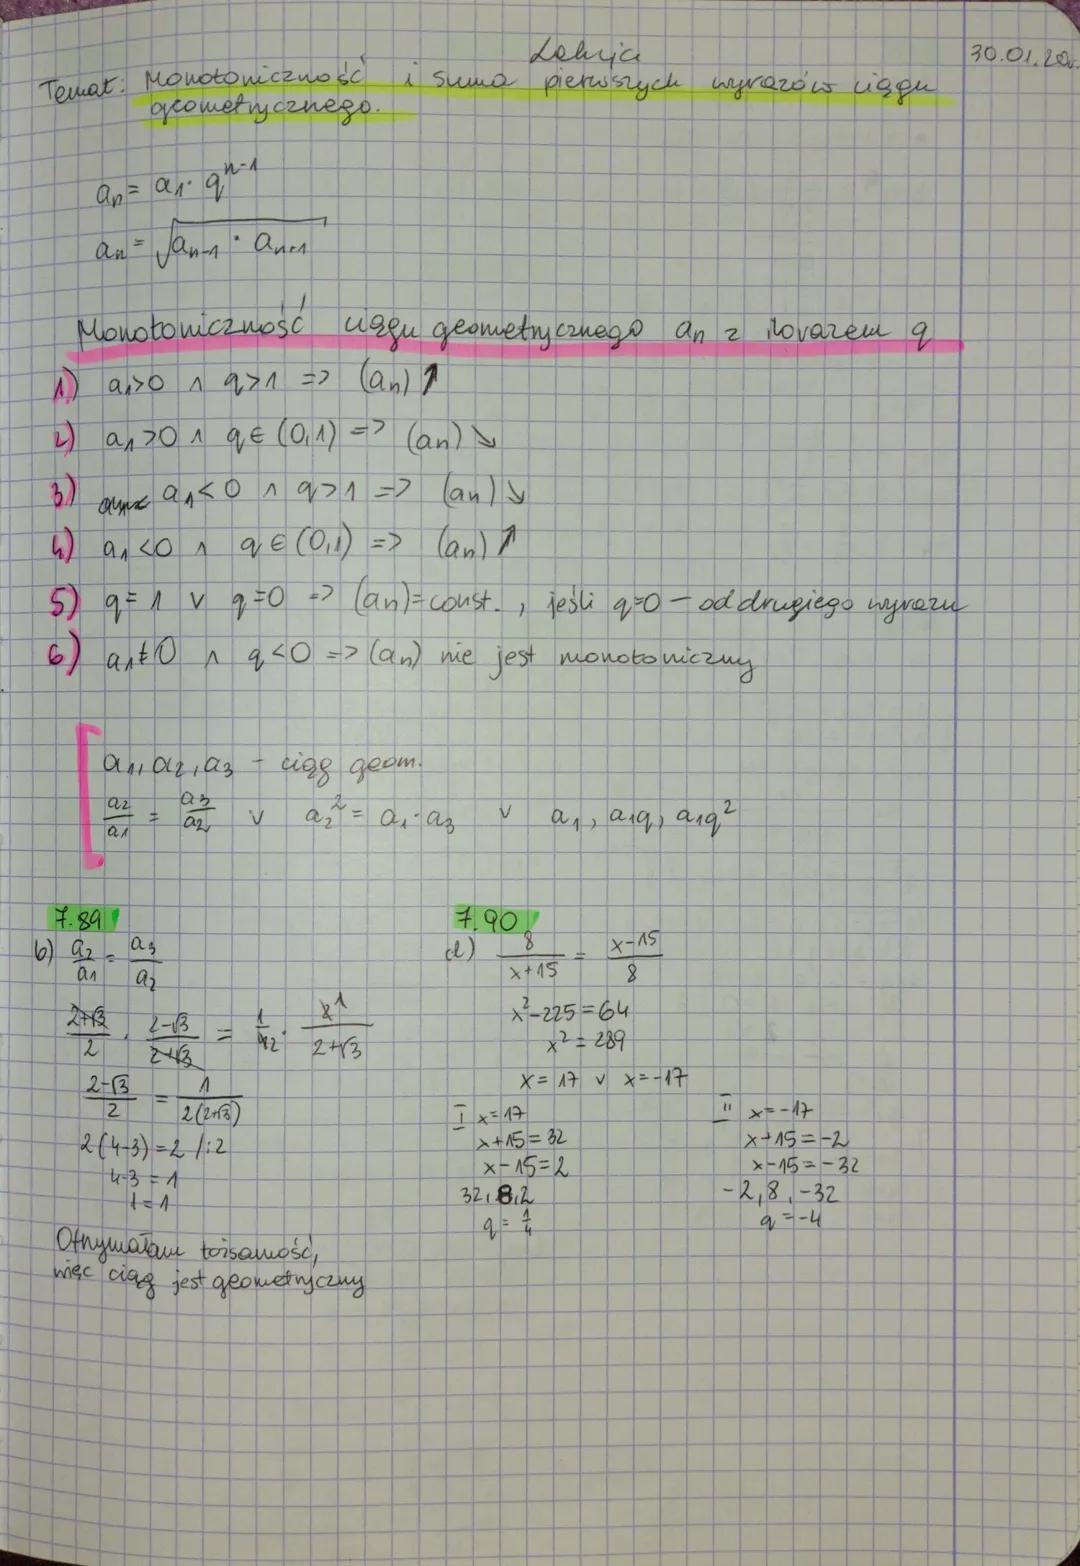 Lekcja
30.01.20
Temat: Monotoniczność i suma pierwszych wyrazów ciągu
geometrycznego.
aₙ = a₁ · qⁿ⁻¹
aₙ = √(aₙ₋₁ · aₙ₊₁)
Monotoniczność ciągu geometrycznego aₙ z ilorazem q
1) a₁>0 ∧ q>1 => (aₙ) ↗
2) a₁>0 ∧ q∈(0,1) => (aₙ) ↘
3) a₁<0 ∧ q>1 => (aₙ) ↘
4) a₁<0 ∧ q∈(0,1) => (aₙ) ↗
5) q=1 ∨ q=0 => (aₙ)=const., jeśli q=0 – od drugiego wyrazu
6) a₁≠0 ∧ q<0 => (aₙ) nie jest monotoniczny
a₁, a₂, a₃ – ciąg geom.
a₂/a₁ = a₃/a₂ ∨ a₂² = a₁·a₃ ∨ a₁, a₁q, a₁q²
7.89
b) a₂/a₁ = a₃/a₂
(2+√3)/2 · (2-√3)/(2+√3) = 1/4 2 · 2 1/(2+√3)
(2-√3)/2 = 1/(2(2+√3))
2(4-3)=2 /:2
4-3=1
1=1
Otrzymałam tożsamość,
więc ciąg jest geometryczny
7.90
d) 8/(x+15) = (x-15)/8
x²-225=64
x²=289
x=17 ∨ x=-17
I x=17
x+15=32
x-15=2
32, 8, 2
q=1/4
II x=-17
x+15=-2
x-15=-32
-2, 8, -32
q=-4